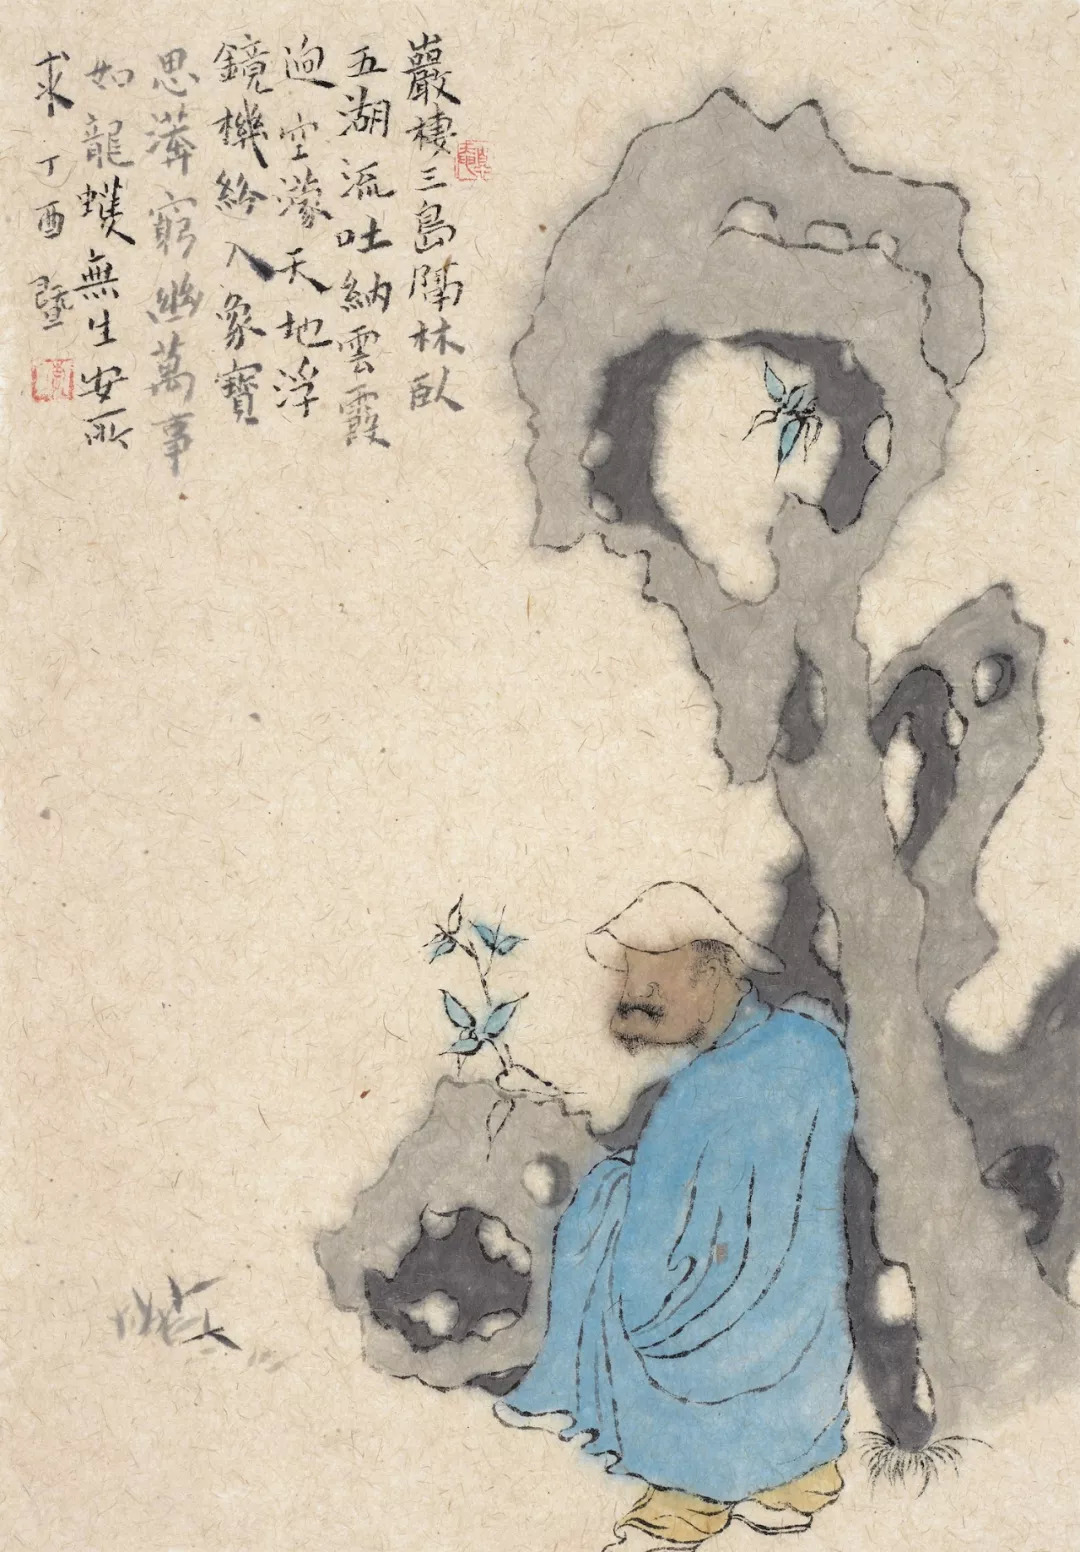 巖棲三島隔林臥
五湖流吐納雲霞
逈空濛天地浮
鏡機終入象寶
思溝窮幽萬事
如龍蠖無生安所
求 丁酉 暨